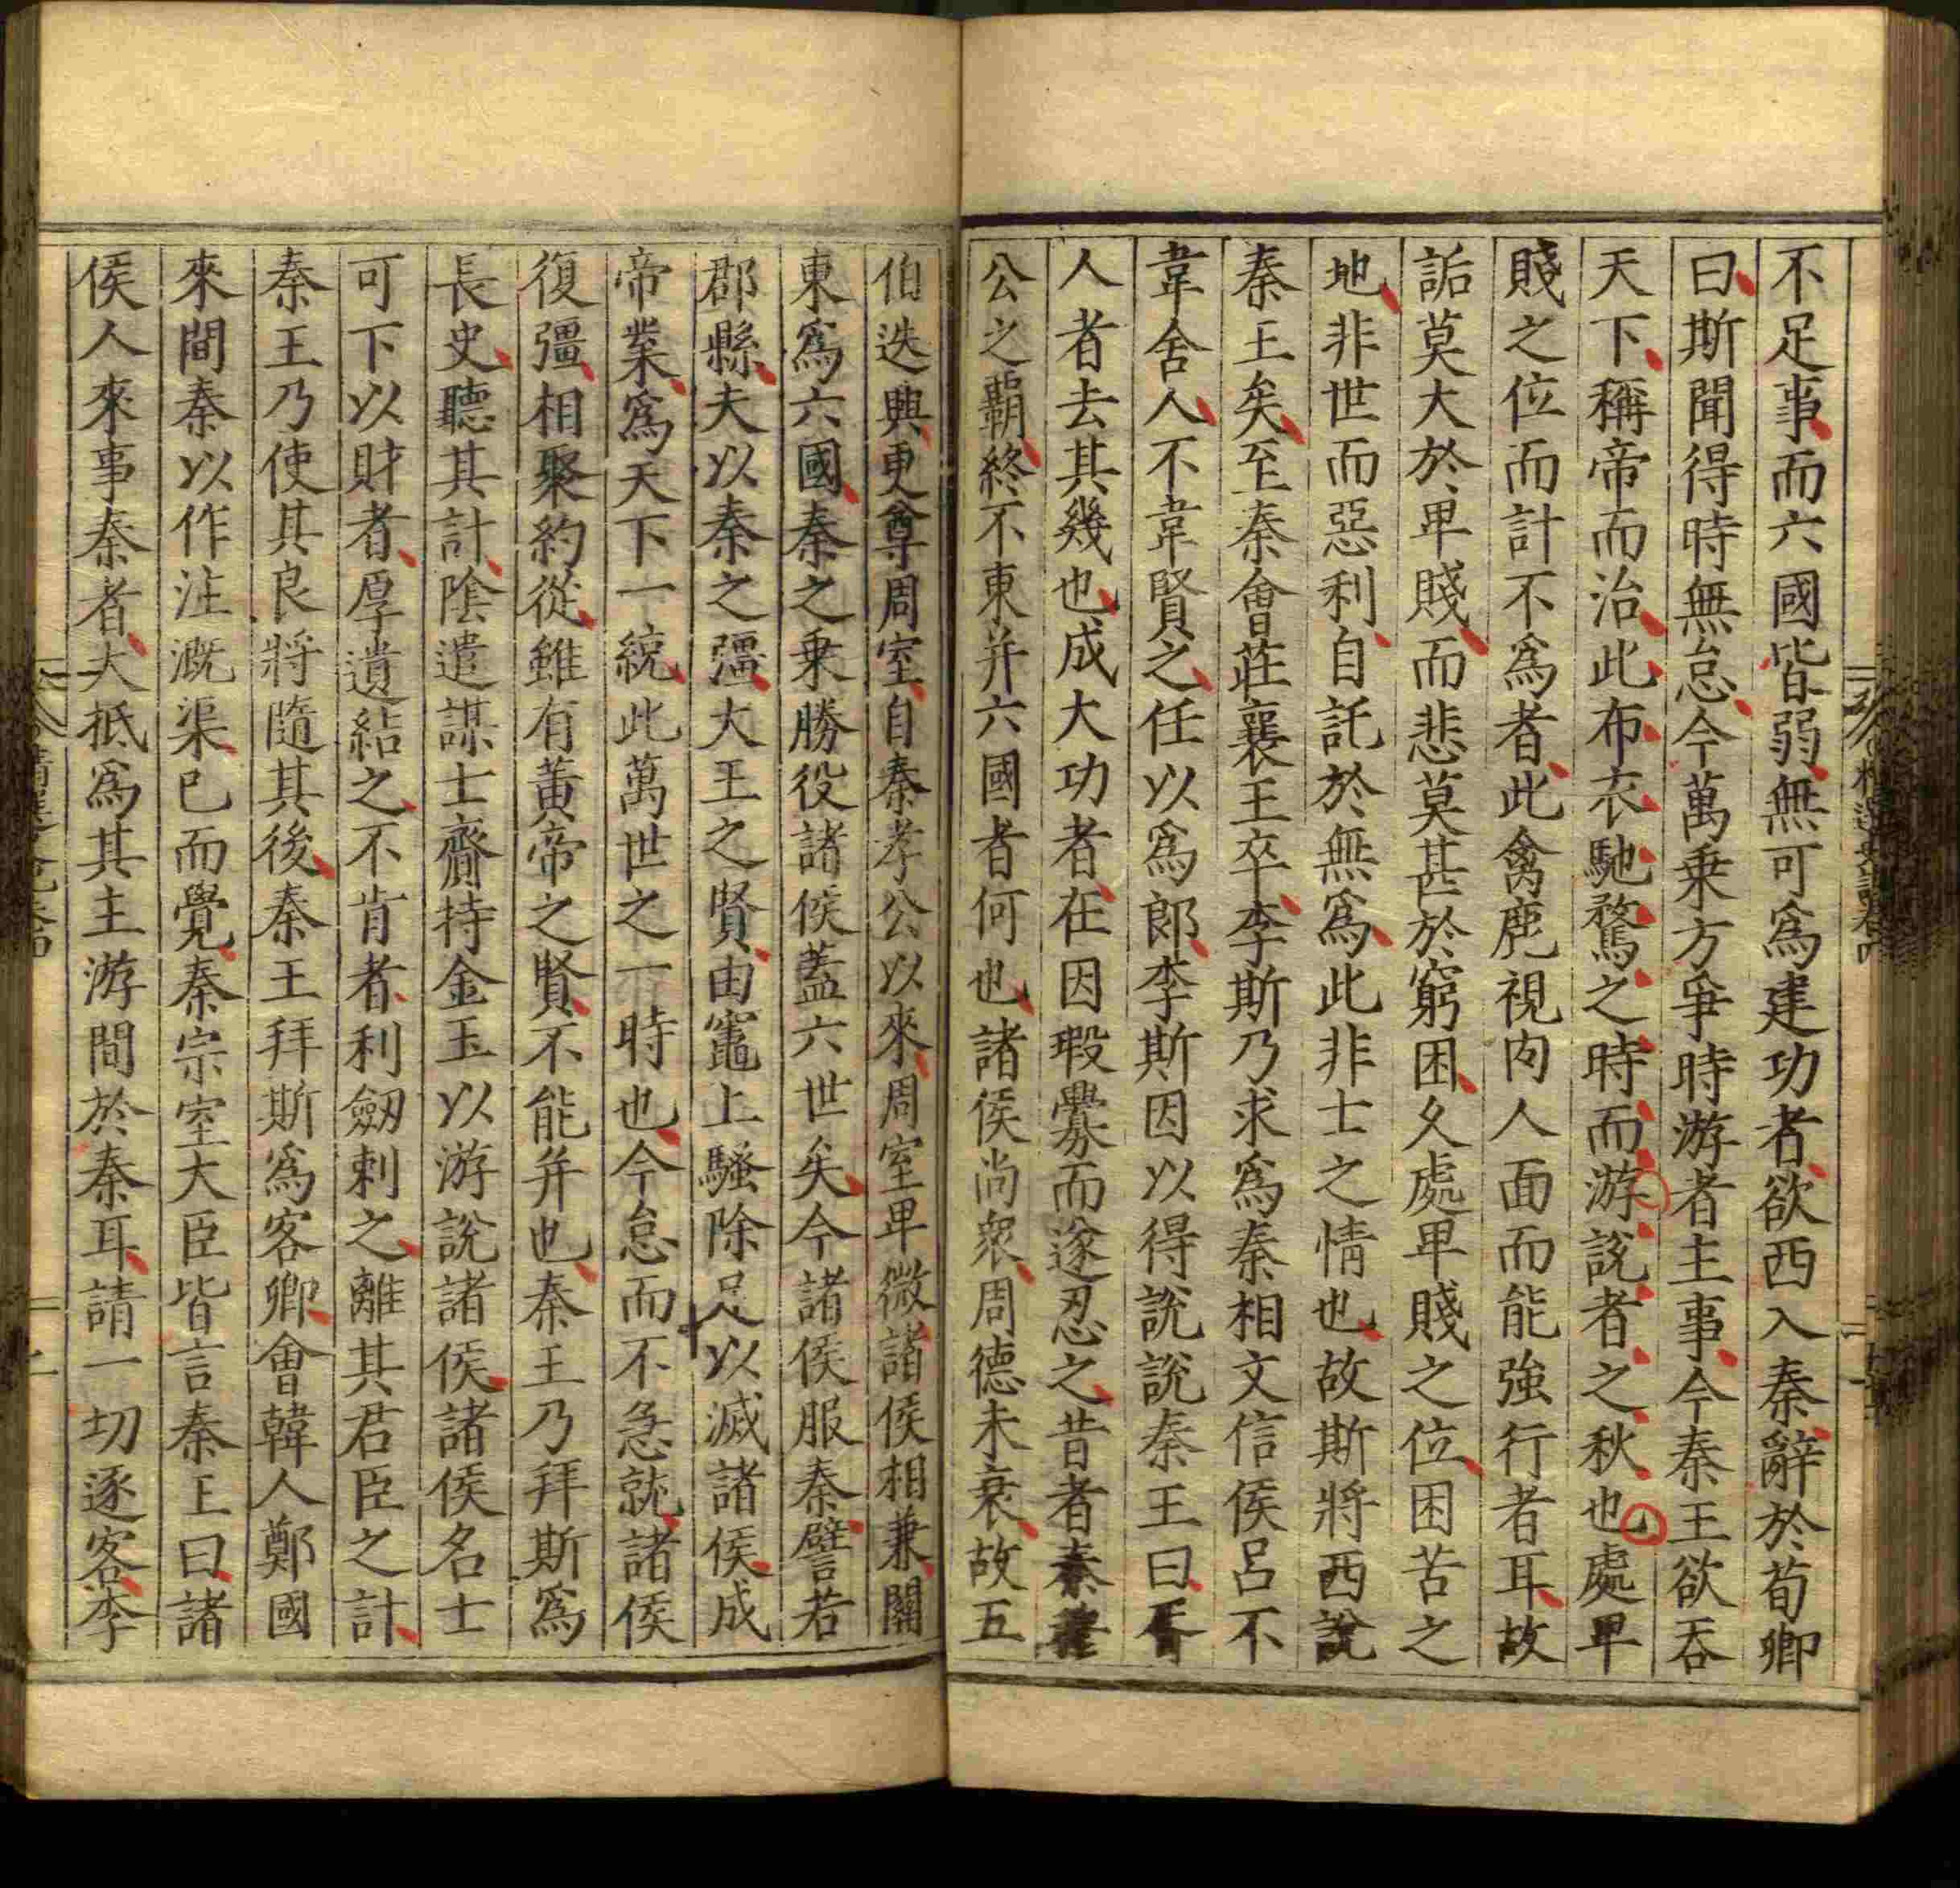 不足事而六國皆弱無可爲建功者欲西入秦辭於荀卿
曰斯聞得時無怠今萬乗方爭時游者主事今秦王欲吞
天下稱帝而治此布衣馳騖之時而游說者之秋也處卑
賤之位而計不爲者此禽鹿視肉人面而能強行者耳故
詬莫大於卑賤而悲莫甚於窮困久處卑賤之位困苦之
地非世而惡利自託於無爲此非士之情也故斯將西說
秦王矣至秦會莊襄王卒李斯乃求爲秦相文信侯呂不
韋舍人不韋賢之任以爲郎李斯因以得說說秦王曰胥
人者去其幾也成大功者在因瑕釁而遂忍之昔者秦
公之覇終不東并六國者何也諸侯尚衆周德未衰故五
伯迭興更尊周室自秦孝公以來周室卑微諸侯相兼關
東爲六國秦之乗勝役諸侯蓋六世矣今諸侯服秦譬若
郡縣夫以秦之彊大王之賢由竈上騷除足以滅諸侯成
帝業爲天下一統此萬世之一時也今怠而不急就諸侯
復彊相聚約從雖有黄帝之賢不能并也秦王乃拜斯爲
長史聽其計陰遣謀士齎持金玉以游說諸侯諸侯名士
可下以財者厚遺結之不肯者利劒刺之離其君臣之計
秦王乃使其良將隨其後秦王拜斯爲客卿會韓人鄭國
來間秦以作注溉渠已而覺秦宗室大臣皆言秦王曰諸
侯人來事秦者大抵爲其主游間於秦耳請一切逐客李